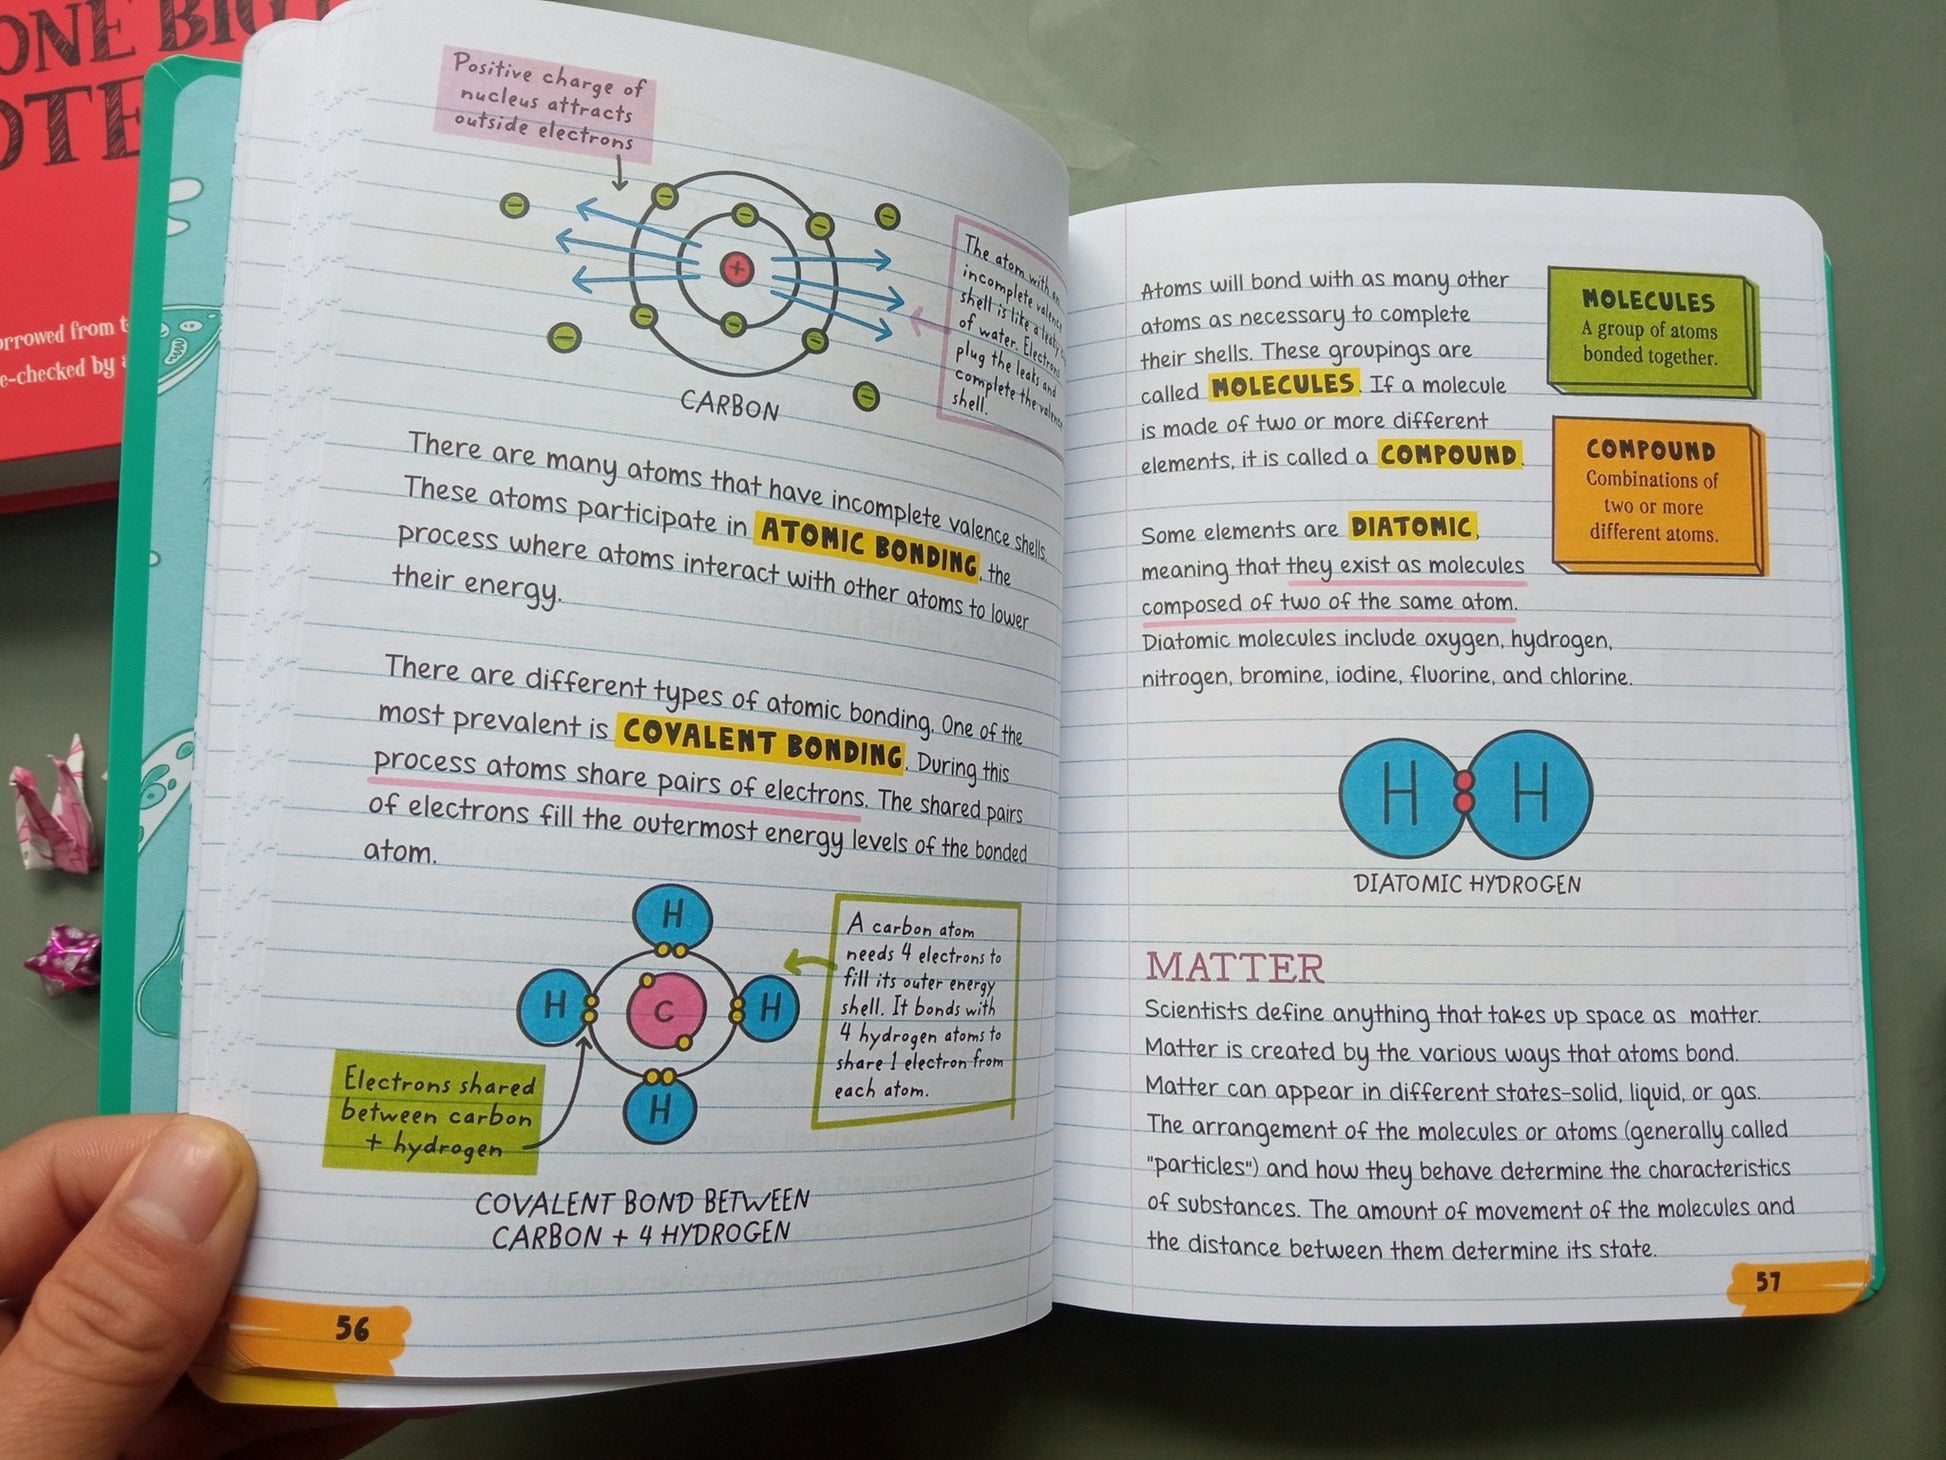 ONE BIG
OTE
orrowed from
e-checked by
Positive charge of
nucleus attracts
outside electrons
+
CARBON
The atom with an
incomplete valence
shell is like a leaky
of water. Electrons
plug the leaks and
complete the valence
shell.
There are many atoms that have incomplete valence shells.
These atoms participate in ATOMIC BONDING, the
process where atoms interact with other atoms to lower
their energy.
There are different types of atomic bonding. One of the
most prevalent is COVALENT BONDING. During this
process atoms share pairs of electrons. The shared pairs
of electrons fill the outermost energy levels of the bonded
atom.
H
H C H
H
A carbon atom
needs 4 electrons to
fill its outer energy
shell. It bonds with
4 hydrogen atoms to
share 1 electron from
each atom.
Electrons shared
between carbon
+ hydrogen
COVALENT BOND BETWEEN
CARBON + 4 HYDROGEN
56
Atoms will bond with as many other
atoms as necessary to complete
their shells. These groupings are
called MOLECULES. If a molecule
is made of two or more different
elements, it is called a COMPOUND.
MOLECULES
A group of atoms
bonded together.
COMPOUND
Combinations of
two or more
different atoms.
Some elements are DIATOMIC,
meaning that they exist as molecules
composed of two of the same atom.
Diatomic molecules include oxygen, hydrogen,
nitrogen, bromine, iodine, fluorine, and chlorine.
H H
DIATOMIC HYDROGEN
MATTER
Scientists define anything that takes up space as matter.
Matter is created by the various ways that atoms bond.
Matter can appear in different states-solid, liquid, or gas.
The arrangement of the molecules or atoms (generally called
"particles") and how they behave determine the characteristics
of substances. The amount of movement of the molecules and
the distance between them determine its state.
57